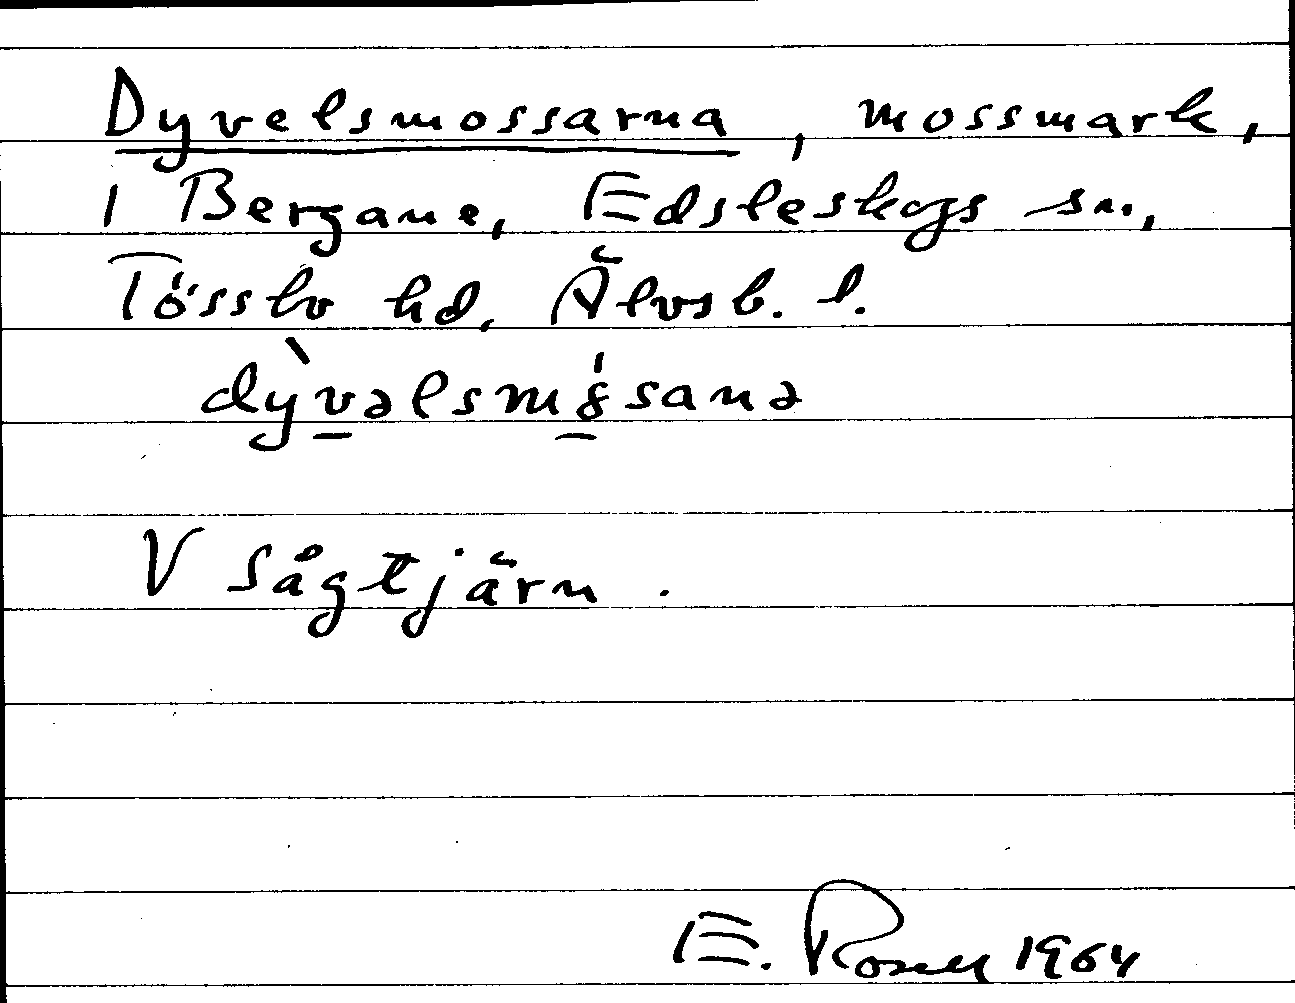 Dyvelsmossarna, mossmark,
i Bergane, Edsleskogs sn.,
Tössbo hd, Älvsb. l.
dỳvəlsmȣ́sanə
V Sågtjärn.
E. Rosell 1964